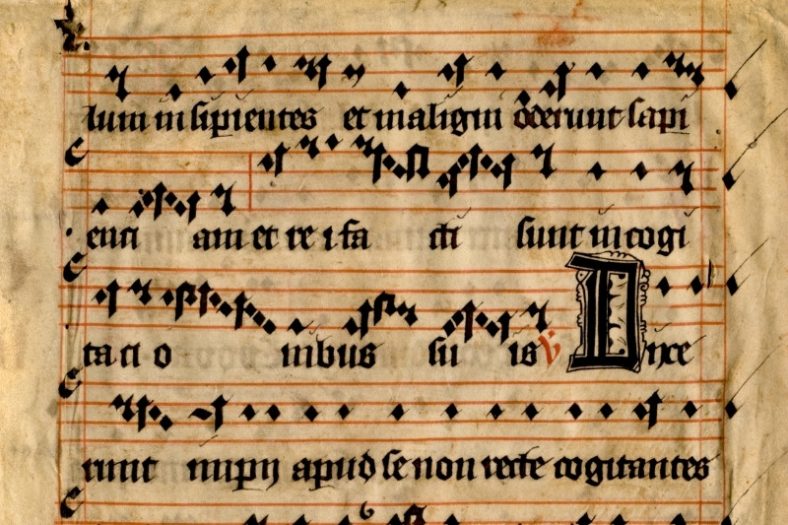 lum insipientes et maligni oderunt sapi
enci am et re i fa cti sunt in cogi
ta ci o nibus su is V Dixe
runt impij apud se non recte cogitantes